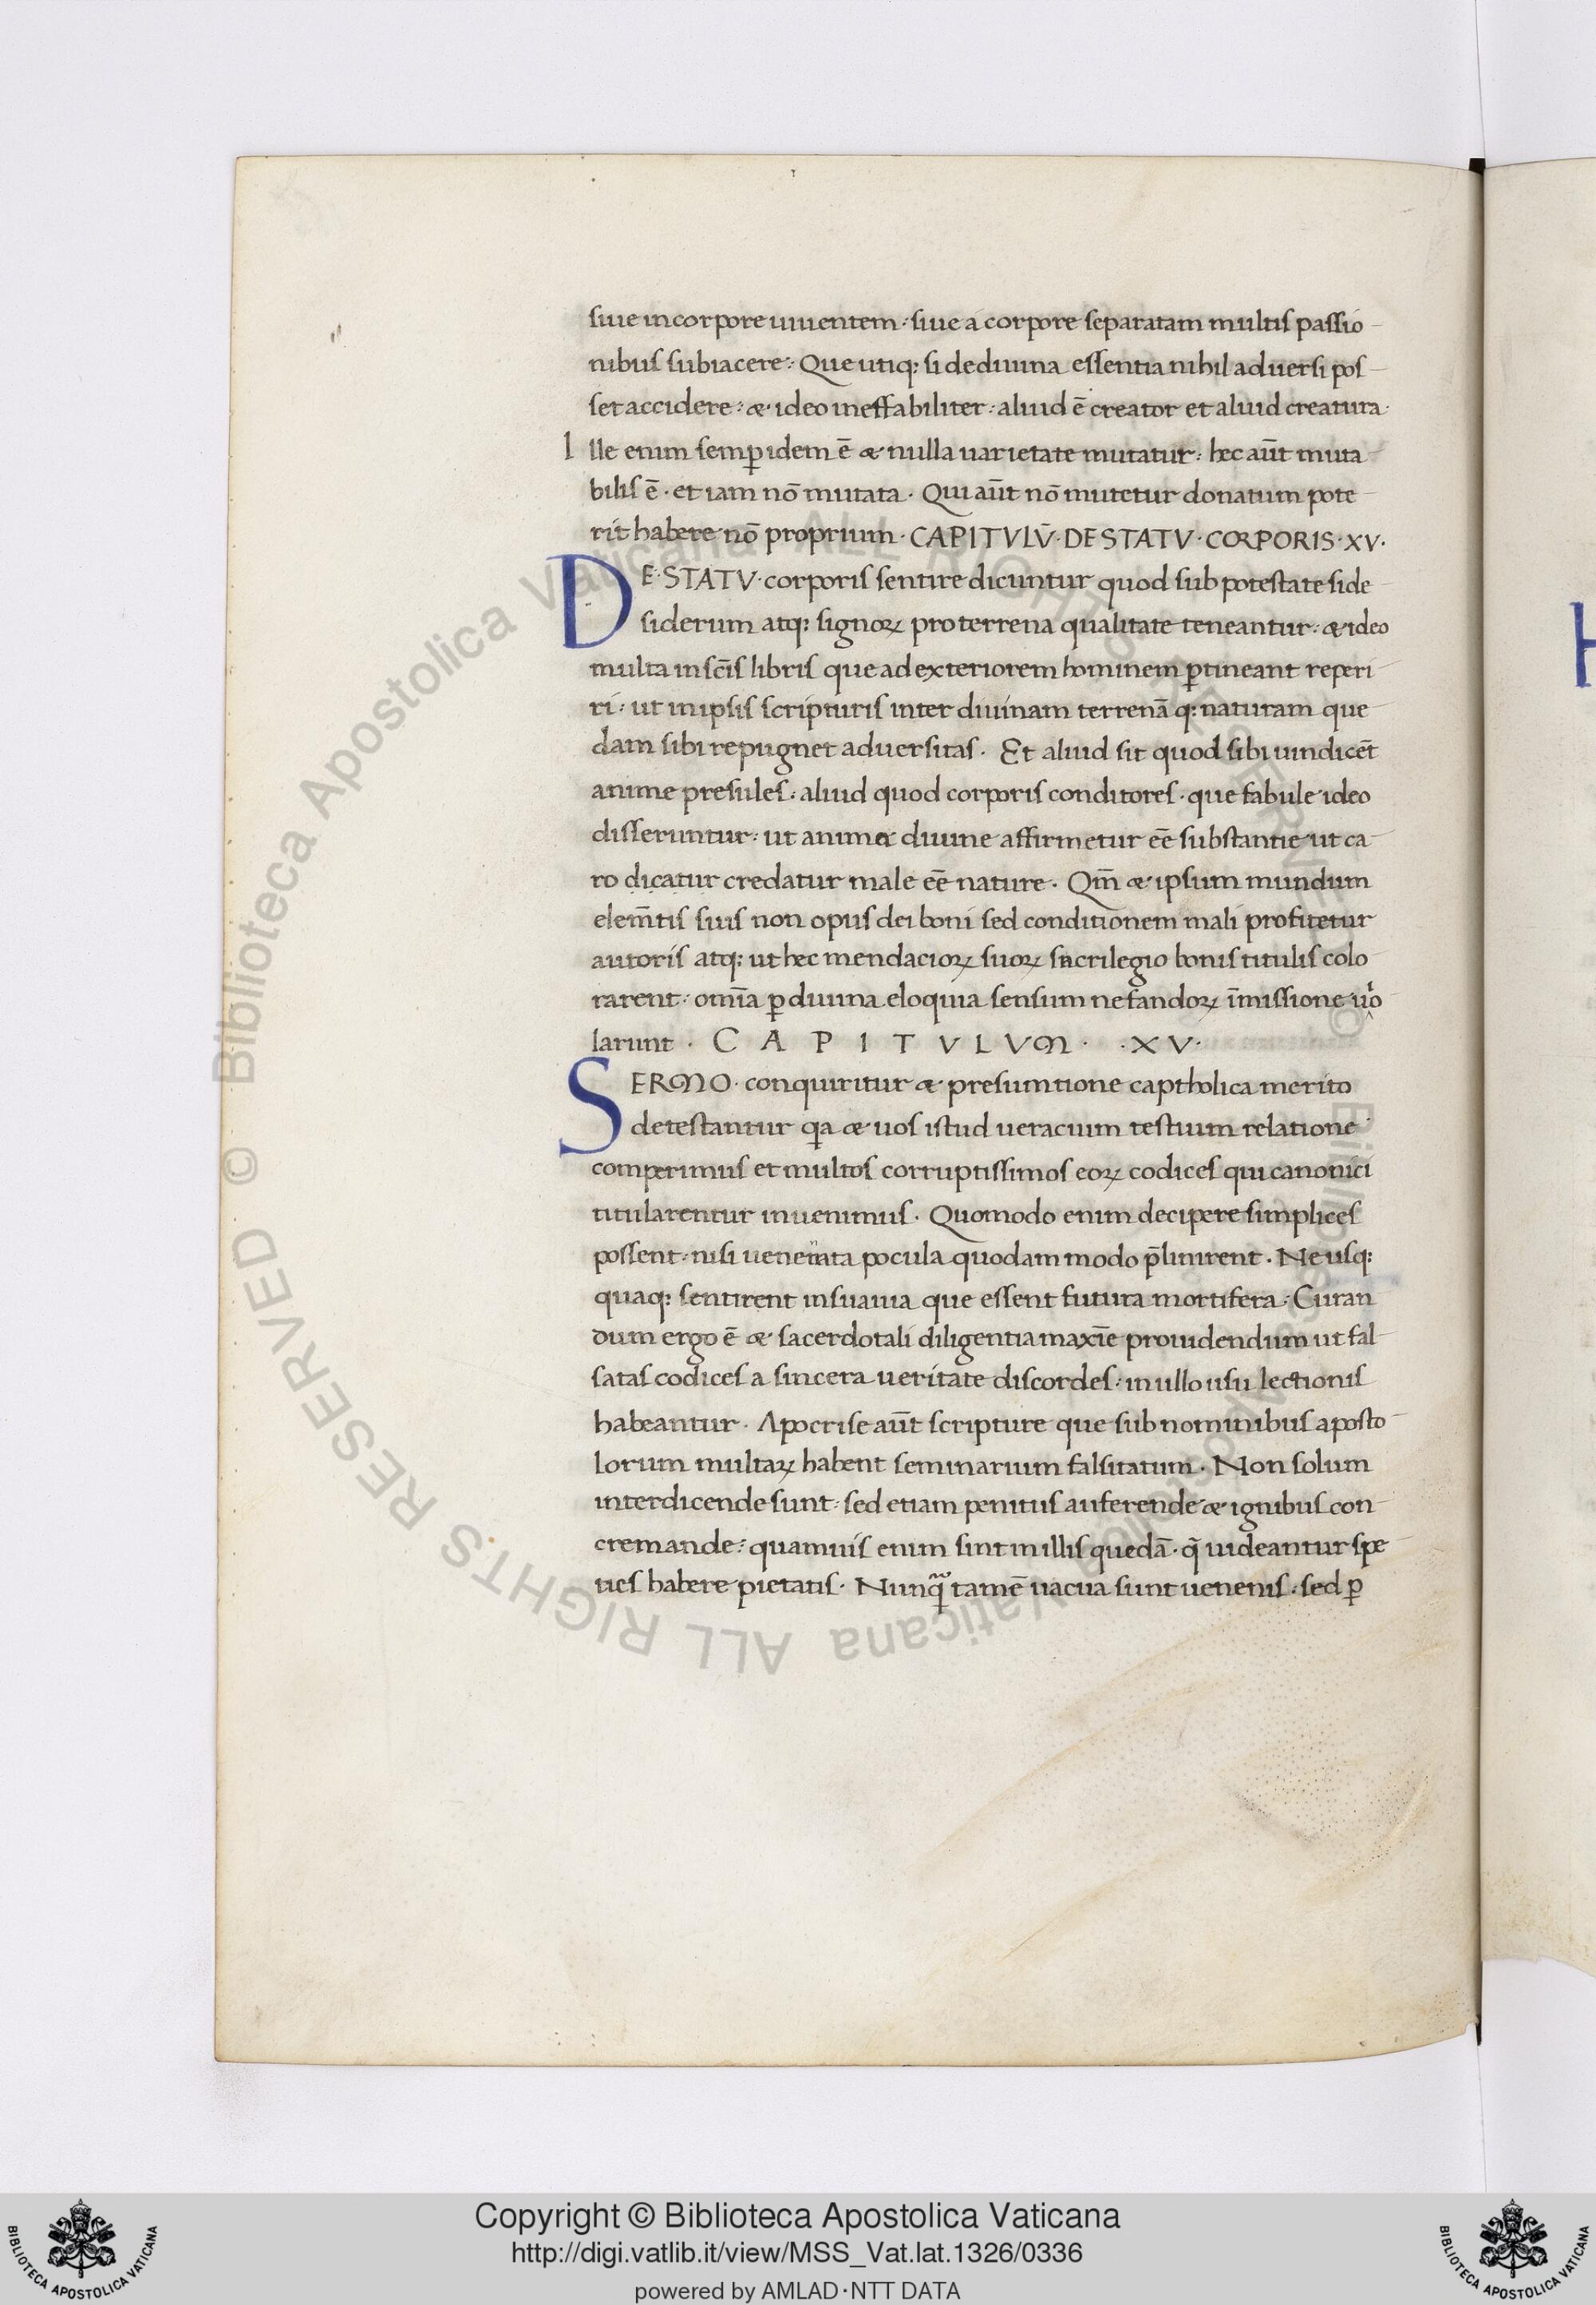 siue in corpore uiuentem : siue a corpore separatam multis passio-
nibus subiacere : Que utiq: si de diuina essentia nihil aduersi pos-
set accidere : & ideo ineffabiliter : aliud ē creator et aliud creatura ·
Ille enim semꝑ idem ē & nulla uarietate mutatur : hec aūt muta-
bilis ē · et iam nō mutata · Qui aūt nō mutetur donatum pote-
rit habere nō proprium · CAPITVLV̄ · DE STATV · CORPORIS · XV ·
DE · STATV · corporis sentire dicuntur quod sub potestate side-
siderum atq: signoꝝ pro terrena qualitate teneantur : & ideo
multa in scīs libris que ad exteriorem hominem ꝑtineant reperi-
ri : ut in ipsis scripturis inter diuinam terrenā q: naturam que-
dam sibi repugnet aduersitas · Et aliud sit quod sibi uindicēt
anime presules : aliud quod corporis conditores · que fabule ideo
disseruntur : ut anima diuine affirmetur eē substantie ut ca-
ro dicatur credatur male eē nature · Qm̄ & ipsum mundum
elem̄tis suis non opus dei boni sed conditionem mali profitetur
autoris atq: ut hec mendacioꝝ suoꝝ sacrilegio bonis titulis colo-
rarent : om̄ia ꝑ diuina eloquia sensum nefandoꝝ īmissione uio-
larunt · CAPITVLVM · · XV ·
SERMO · conquiritur & presumtione captholica merito
detestantur qia & uos istud ueracium testium relatione
comperimus et multos corruptissimos eoꝝ codices qui canonici
titularentur inuenimus · Quomodo enim decipere simplices
possent : nisi uenenata pocula quodam modo p̄linirent · Ne usq:
quaq: sentirent insuauia que essent futura mortifera : Curan
dum ergo ē & sacerdotali diligentia maxīe prouidendum ut fal-
satas codices a sincera ueritate discordes : in ullo usu lectionis
habeantur · Apocrise aūt scripture que sub nominibus aposto-
lorum multaꝝ habent seminarium falsitatum · Non solum
interdicende sunt : sed etiam penitus auferende & ignibus con-
cremande : quamuis enim sint in illis quedā · q̄ uideantur spe-
ties habere pietatis · Nunqᵃ tamē uacua sunt uenenis : sed ꝑ
© Biblioteca Apostolica Vaticana ALL RIGHTS RESERVED © Biblioteca Apostolica Vaticana ALL RIGHTS RESERVED
Copyright © Biblioteca Apostolica Vaticana
http://digi.vatlib.it/view/MSS_Vat.lat.1326/0336
powered by AMLAD·NTT DATA
BIBLIOTECA APOSTOLICA VATICANA
BIBLIOTECA APOSTOLICA VATICANA